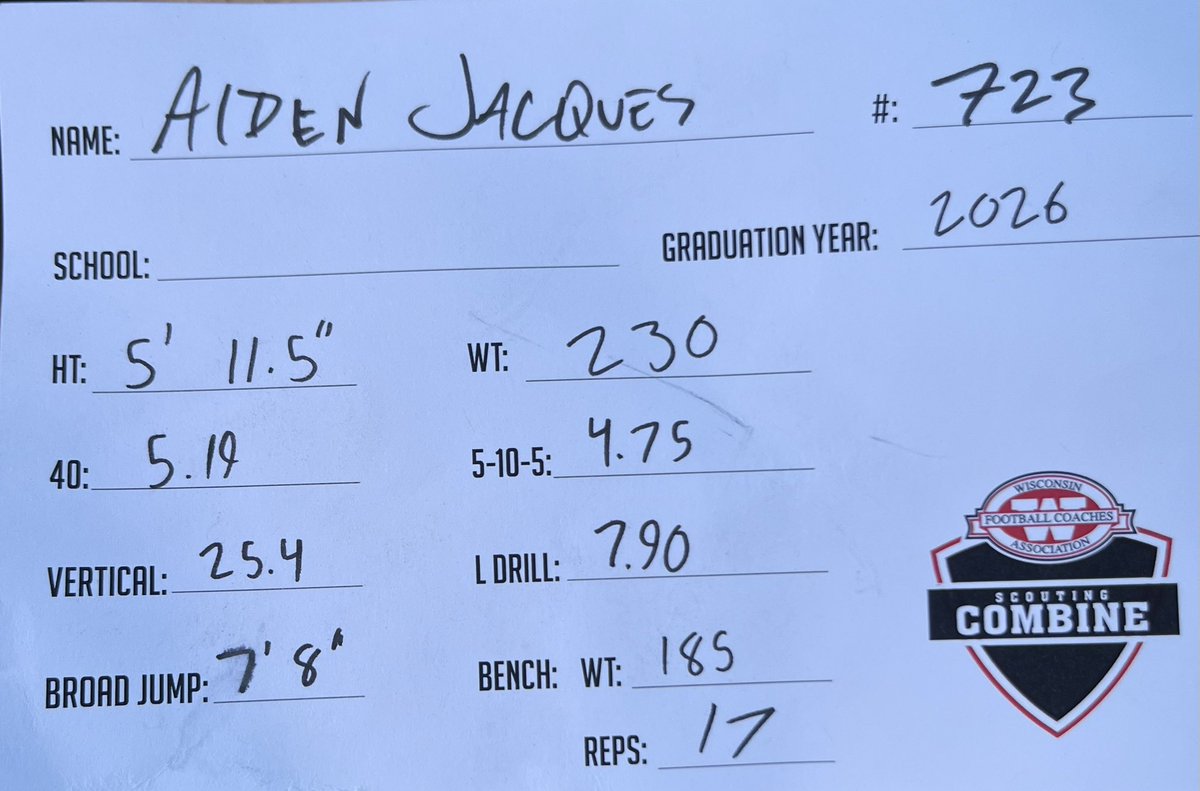 NAME: AIDEN JACQUES #: 723
SCHOOL: GRADUATION YEAR: 2026
HT: 5' 11.5" WT: 230
40: 5.19 5-10-5: 4.75
VERTICAL: 25.4 L DRILL: 7.90
BROAD JUMP: 7' 8" BENCH: WT: 185
REPS: 17
WISCONSIN
FOOTBALL COACHES
ASSOCIATION
SCOUTING
COMBINE